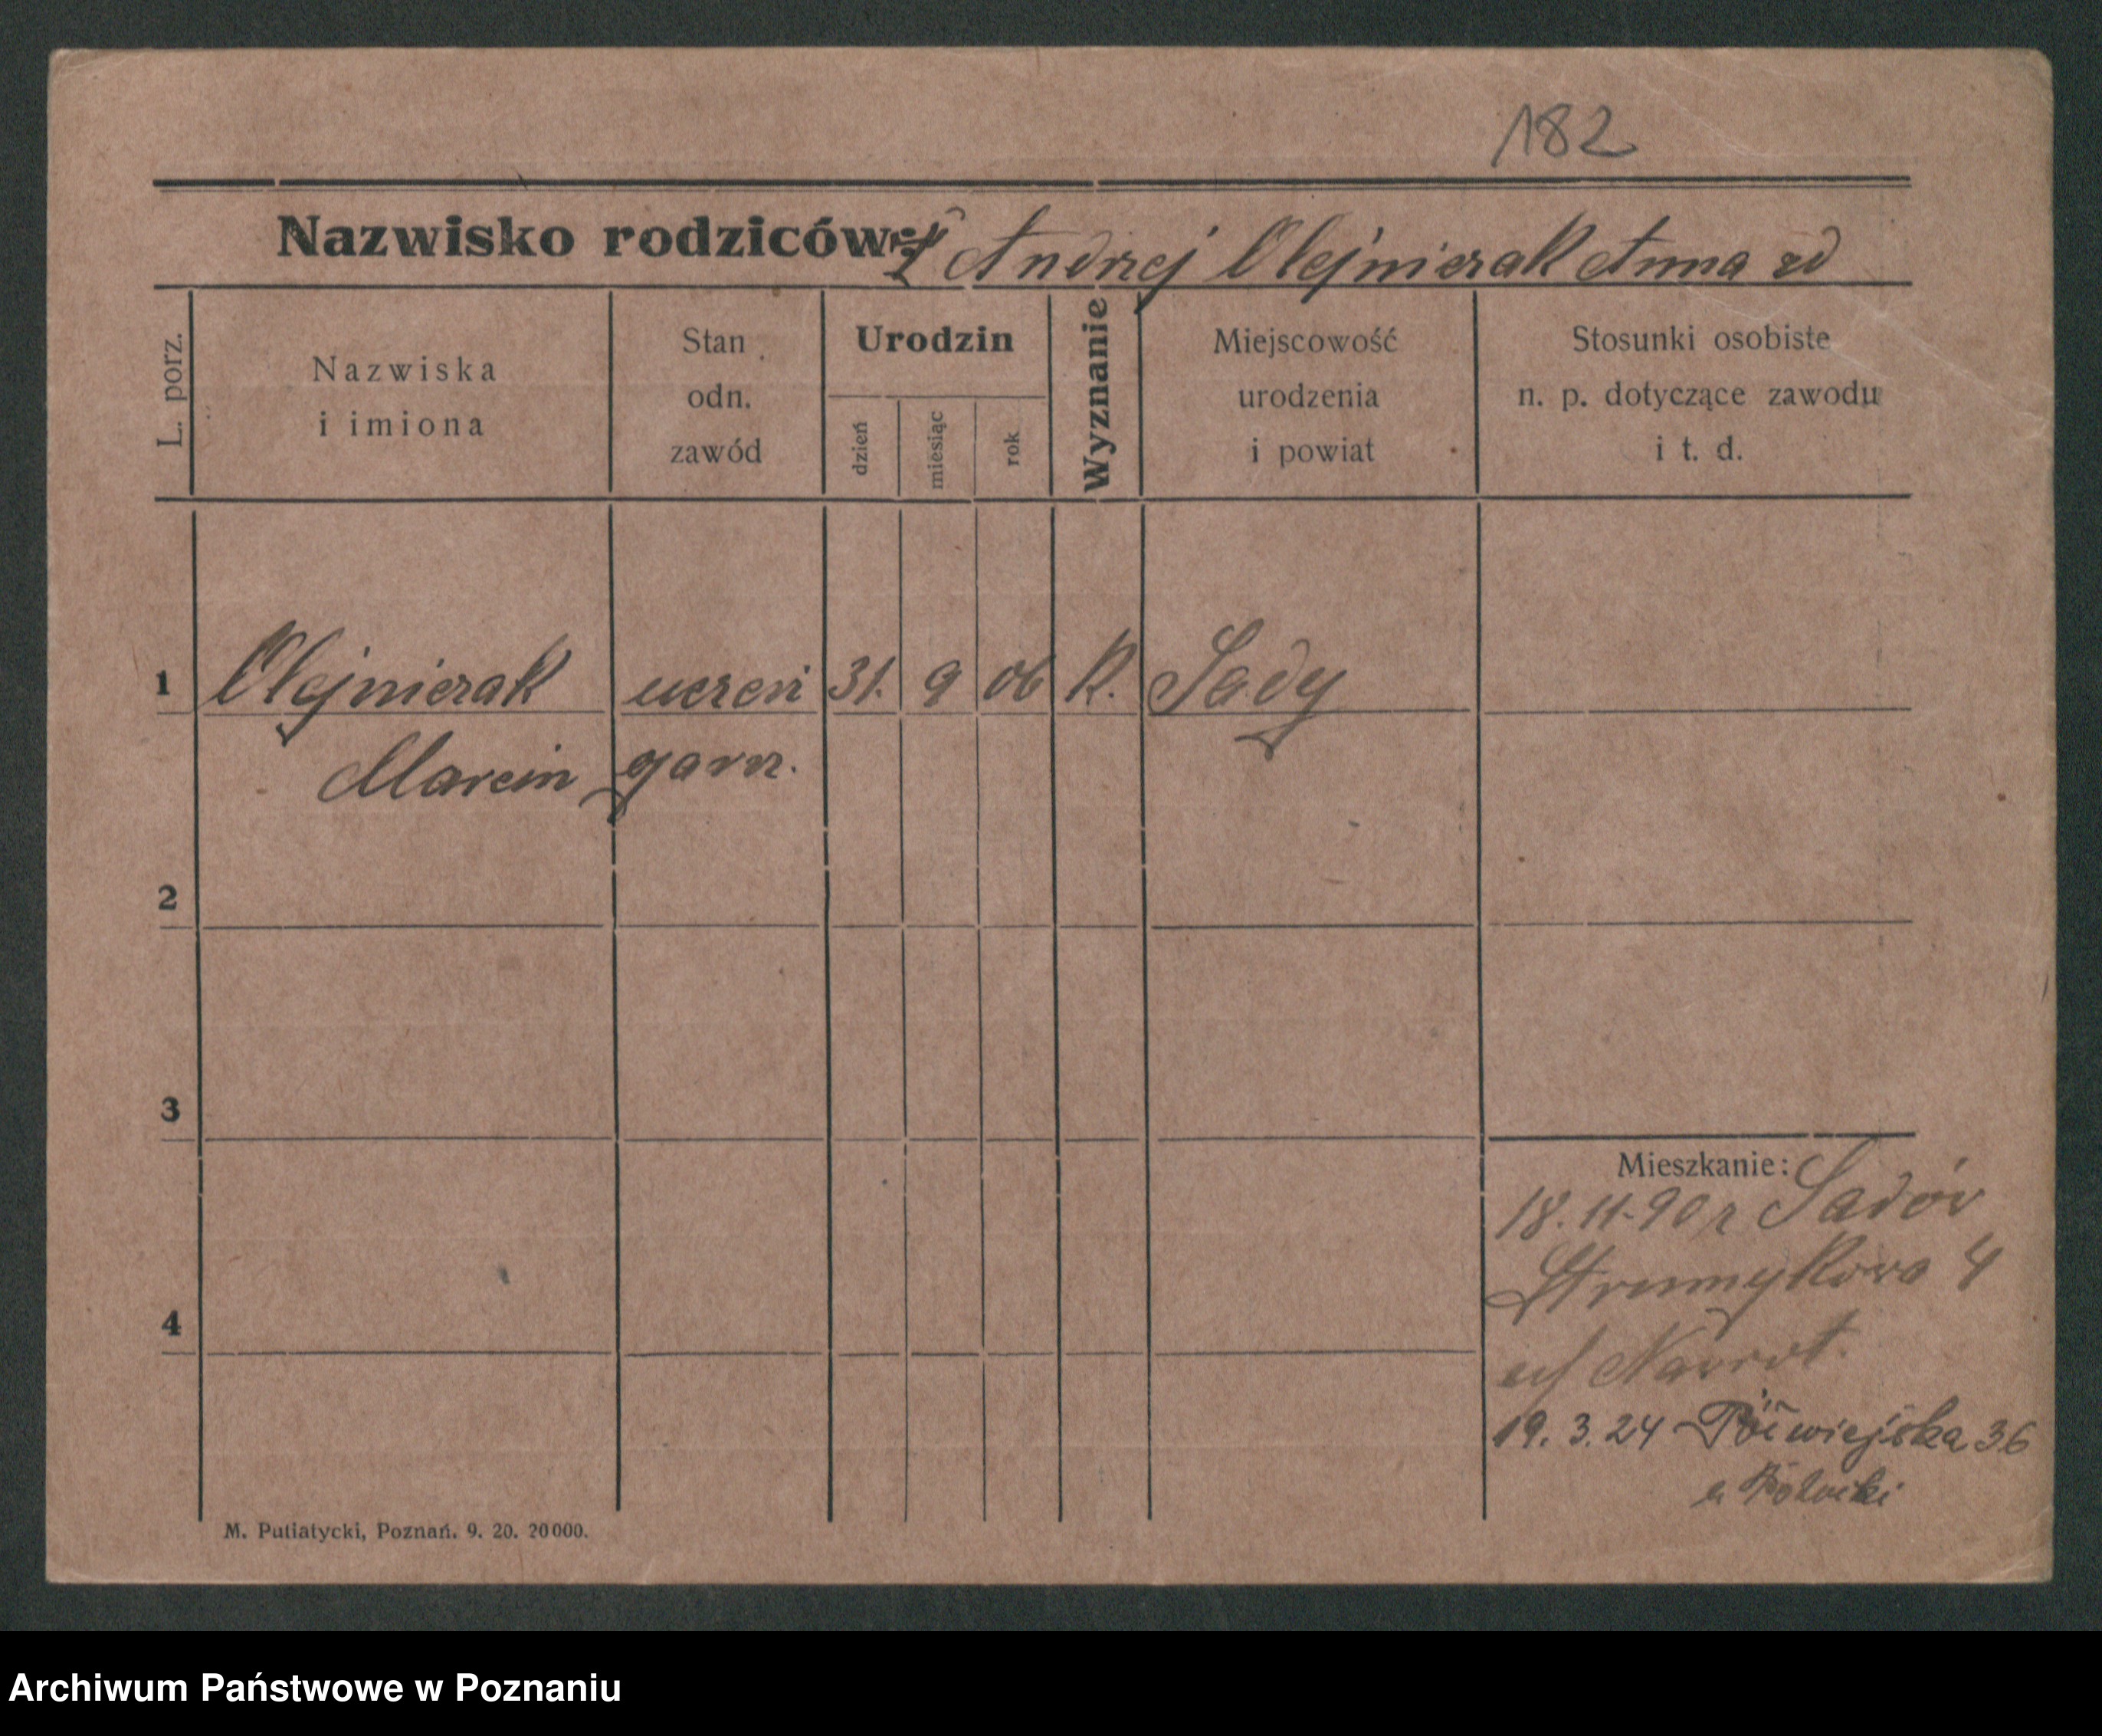 182
Nazwisko rodziców: Andrzej Olejniczak Anna zd
L. porz.
Nazwiska
i imiona
Stan
odn.
zawód
Urodzin
dzień
miesiąc
rok
Wyznanie
Miejscowość
urodzenia
i powiat
Stosunki osobiste
n. p. dotyczące zawodu
i t. d.
1 Olejniczak uczeń 31. 9 06 K. Sady
Marcin garn.
2
3
4
Mieszkanie:
18. 11. 20 z Sadów
Strumykowa 4
u/ Nawrot.
19. 3. 24 Półwiejska 36
M. Putiatycki, Poznań. 9. 20. 20000.
Archiwum Państwowe w Poznaniu